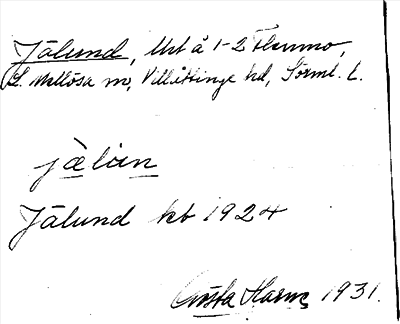 Jälund, Utt å 1-2 Flenmo,
L. Mellösa sn, Villåttinge hd, Sörml. L.
jälun
Jälund kb 1924
Gösta Harms 1931.